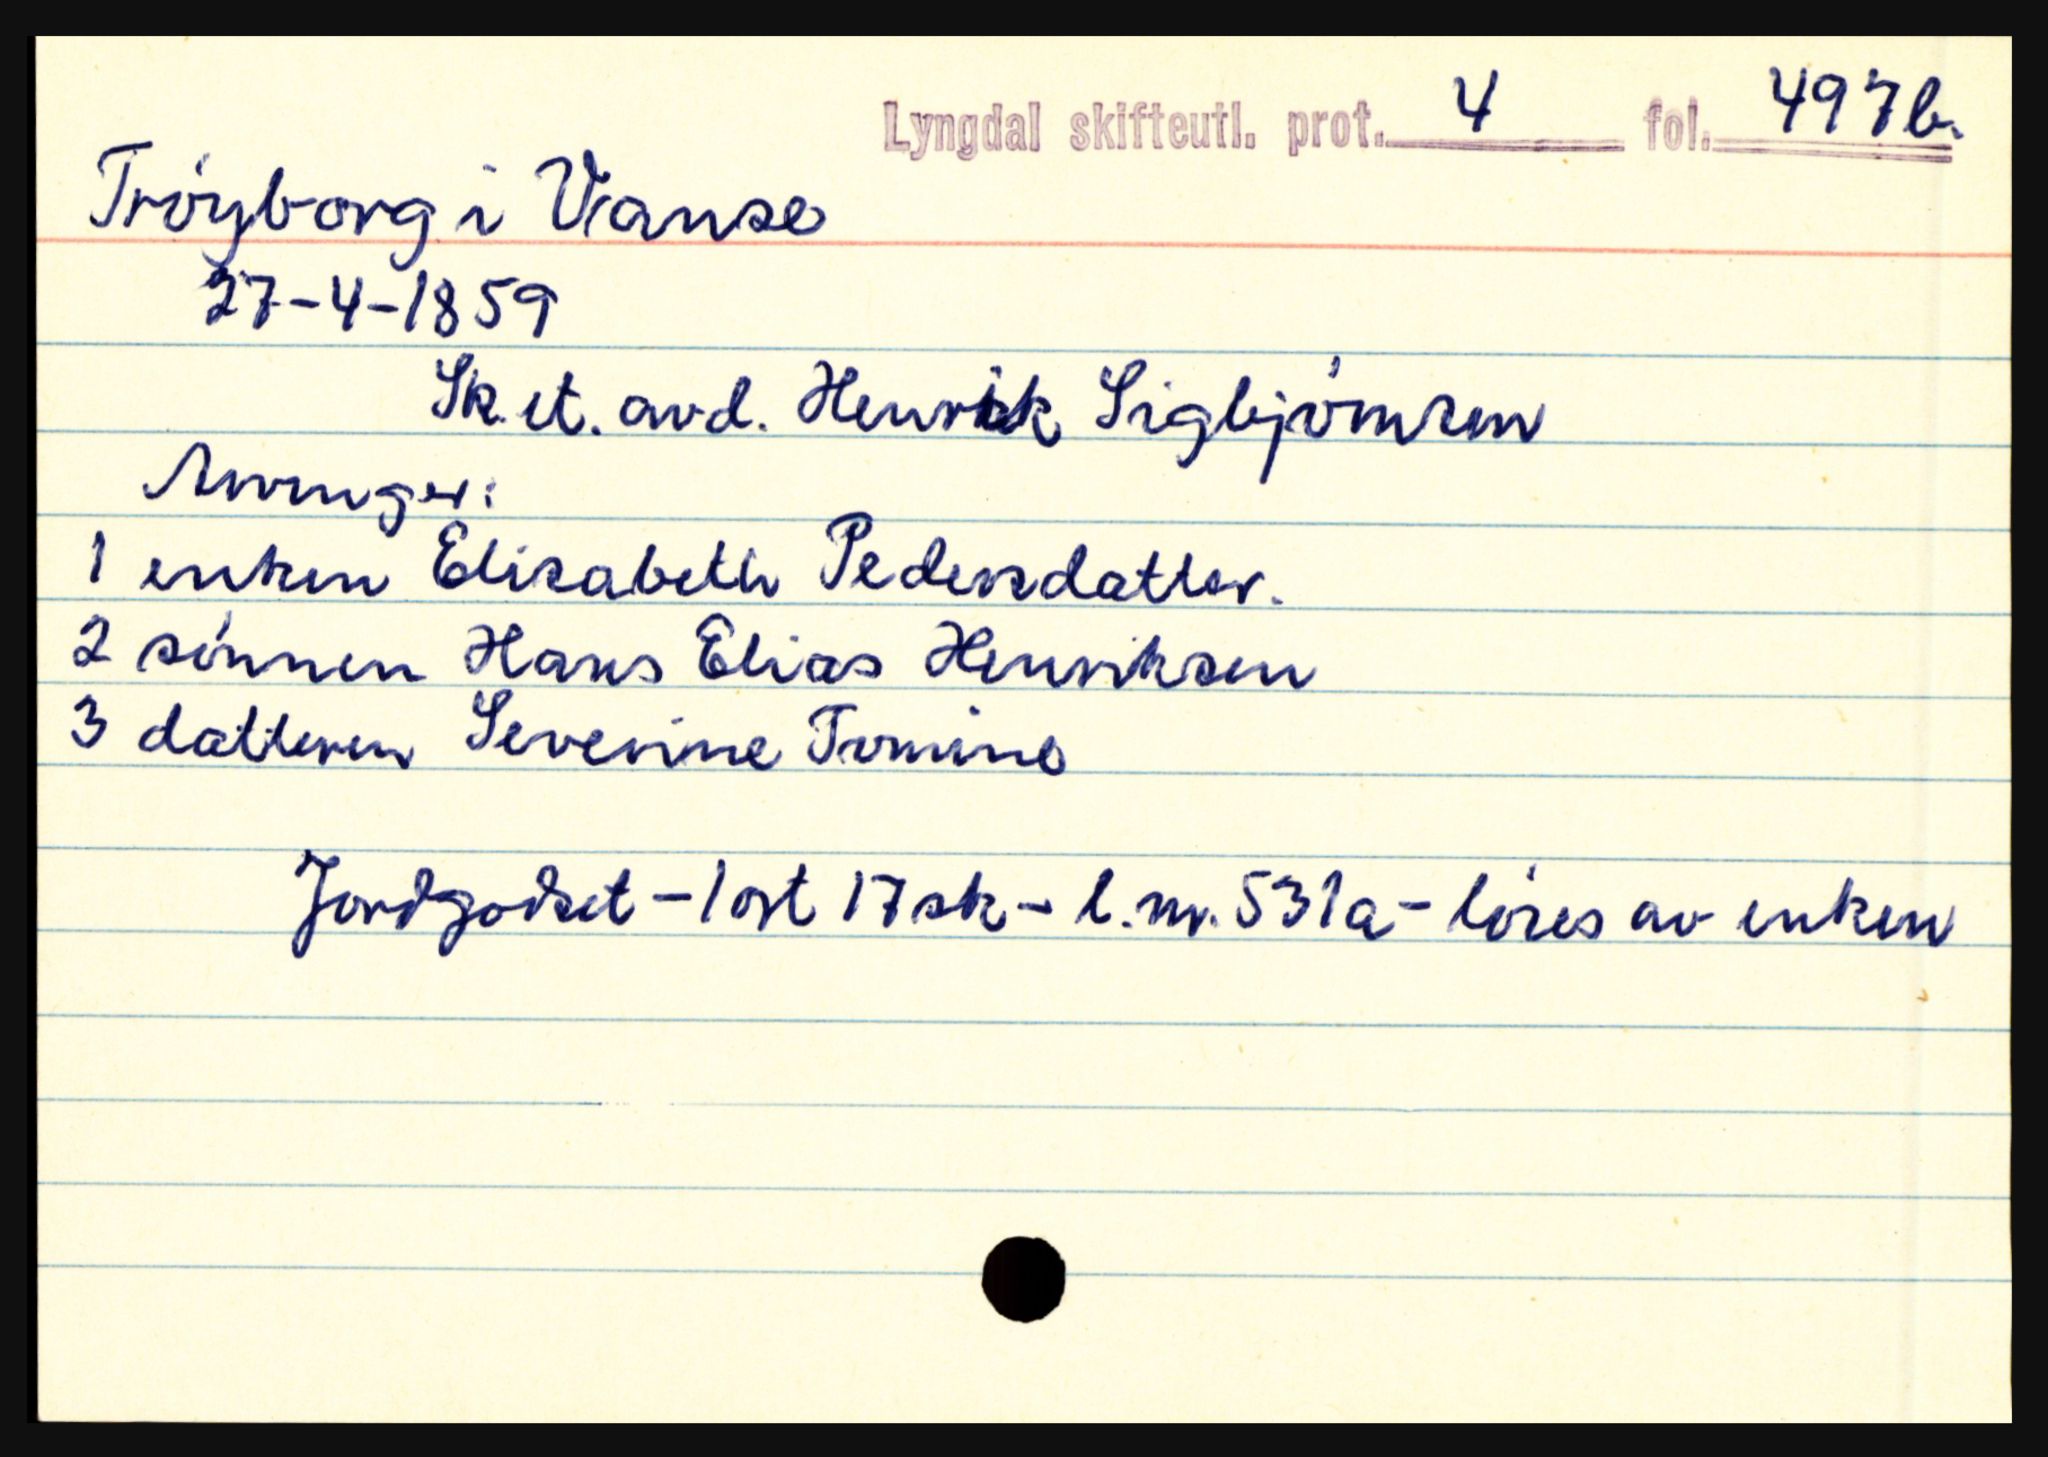 Lyngdal skifteutl. prot. 4 fol. 497b.
Trøyborg i Vanse
27-4-1859
Sk. et. avd. Henrik Sigbjørnsen
Arvinger:
1 enken Elisabeth Pedersdatter.
2 sønnen Hans Elias Henriksen
3 datteren Severine Tomine
Jordgodset - 1 ort 17 sk - l.nr. 531a - løses av enken